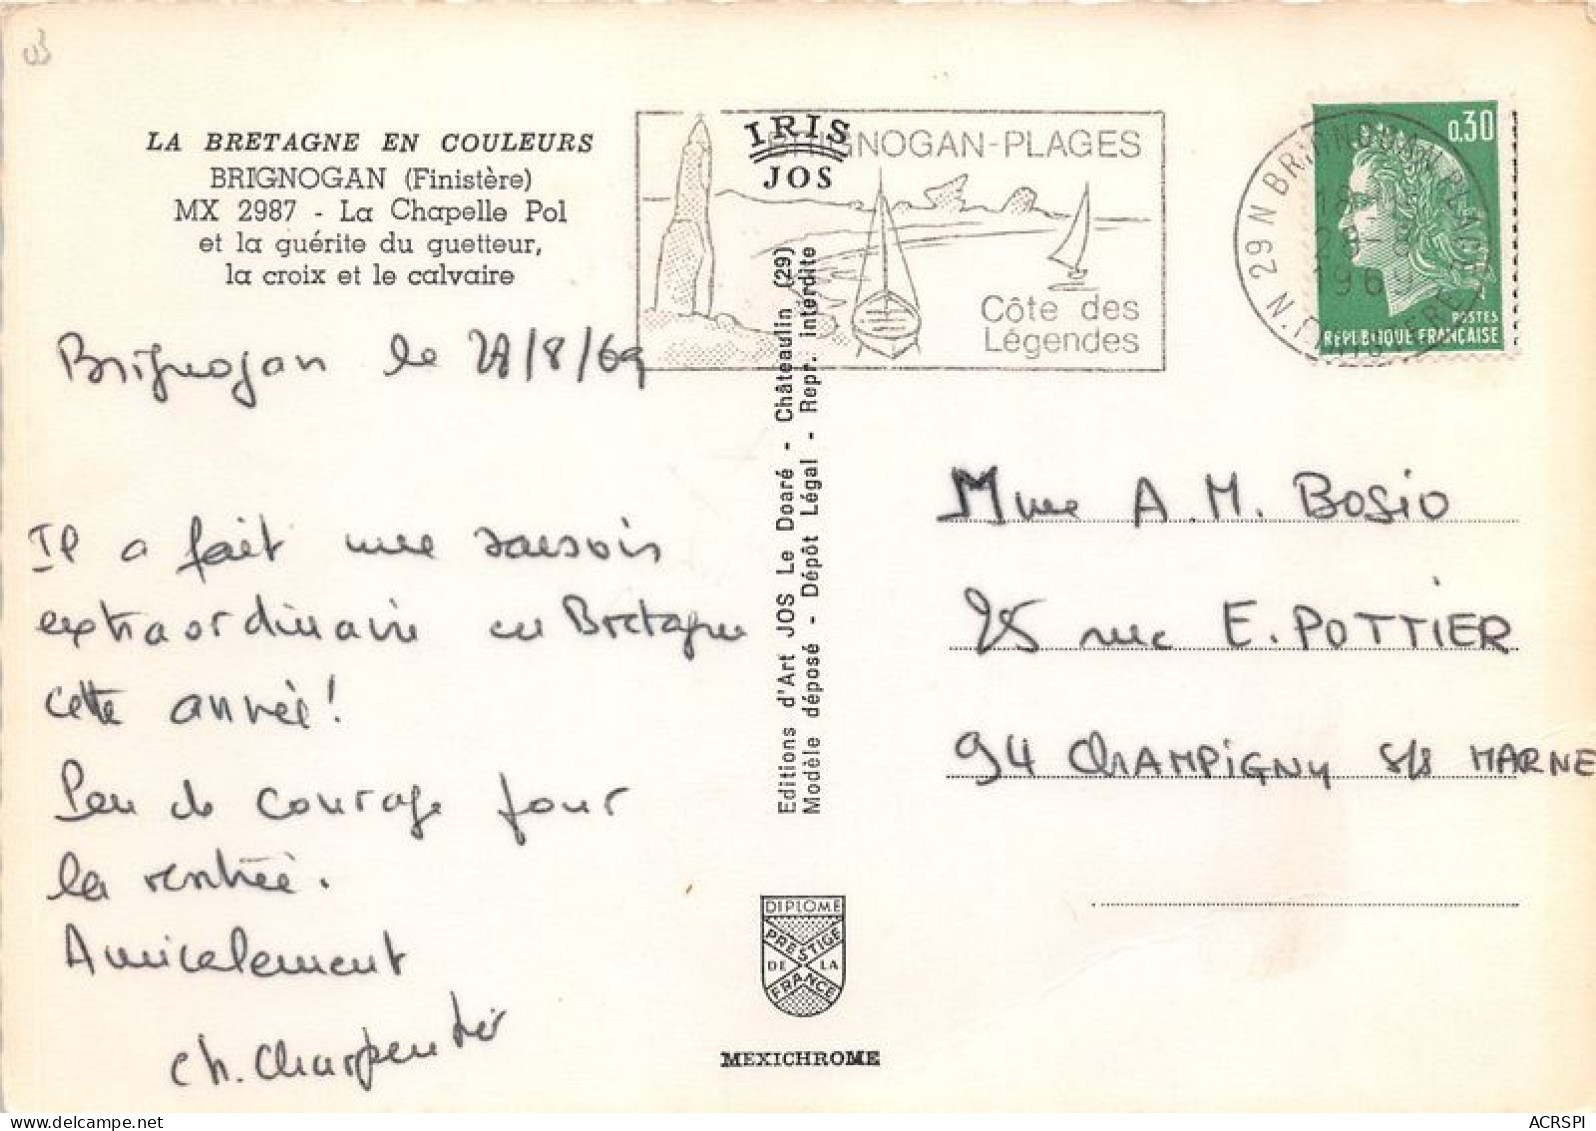 LA BRETAGNE EN COULEURS
BRIGNOGAN (Finistère)
MX 2987 - La Chapelle Pol
et la guérite du guetteur,
la croix et le calvaire
Brignogan le 28/8/69
Il a fait une saison
extraordinaire en Bretagne
cette année!
Peu de courage pour
la rentrée.
Amicalement
Ch. Charpentier
IRIS
JOS
BRIGNOGAN-PLAGES
Côte des
Légendes
Editions d'Art JOS Le Doaré - Châteaulin (29)
Modèle déposé - Dépôt Légal - Repr. interdite
DIPLOME
PRESTIGE
DE LA
FRANCE
MEXICHROME
29 N BRIGNOGAN PLAGES
1969
0,30
POSTES
REPUBLIQUE FRANÇAISE
Mme A.M. BOSIO
25 rue E. POTTIER
94 CHAMPIGNY s/s MARNE
ACRSPI